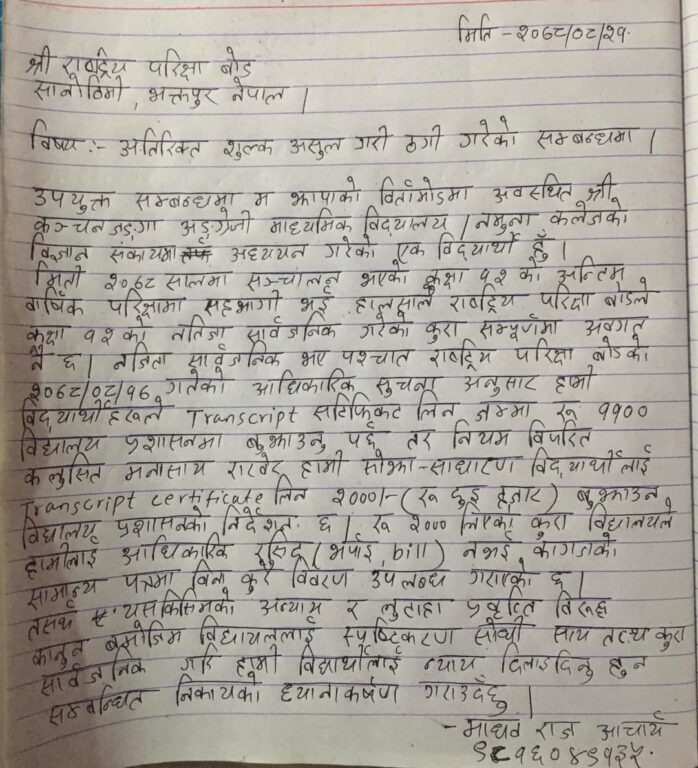 मिति - २०७८/०८/२१
श्री राष्ट्रिय परिक्षा बोर्ड
सानोठिमी, भक्तपुर नेपाल ।
विषय :- अतिरिक्त शुल्क असुल गरी ठगी गरेको सम्बन्धमा ।
उपयुक्त सम्बन्धमा म झापाको विर्तामोडमा अवस्थित श्री
कञ्चनजङ्गा अङ्ग्रेजी माध्यमिक विद्यालय / नमुना कलेजको
विज्ञान संकायमा अध्ययन गरेको एक विद्यार्थी हुँ ।
मिती २०७८ सालमा सञ्चालन भएको कक्षा १२ को अन्तिम
वार्षिक परिक्षामा सहभागी भई हालसालै राष्ट्रिय परिक्षा बोर्डले
कक्षा १२ को नतिजा सार्वजनिक गरेको कुरा सम्पूर्णमा अवगत
नै छ । नजिता सार्वजनिक भए पश्चात राष्ट्रिय परिक्षा बोर्डको
२०७८/०८/१६ गतेको आधिकारिक सुचना अनुसार हामी
विद्यार्थीहरूले Transcript सर्टिफिकेट लिन जम्मा रू ११००
विद्यालय प्रशासनमा बुझाउनु पर्छ तर नियम विपरित
कलुसित मनासाय राखेर हामी सोझा-साधारण विद्यार्थीलाई
Transcript certificate लिन २०००।- (रू दुई हजार) बुझाउन
विद्यालय प्रशासनको निर्देशन छ । रू २००० लिएको कुरा विद्यालयले
हामीलाई आधिकारिक रसिद (भर्पाई, bill) नभई कागजको
सामान्य पत्रमा विना कुनै विवरण उपलब्ध गराएको छ ।
तसर्थ यसकिसिमको अन्याय र लुताहा प्रवृत्ति विरूद्ध
कानुन बमोजिम विद्यायललाई स्पष्टिकरण सोधी सत्य तथ्य कुरा
सार्वजनिक गरि हामी विद्यार्थीलाई न्याय दिलाइदिनु हुन
सम्बन्धित निकायको ध्यानाकर्षण गराउँदछु ।
- माधव राज आचार्य
९८१६०४९१३५